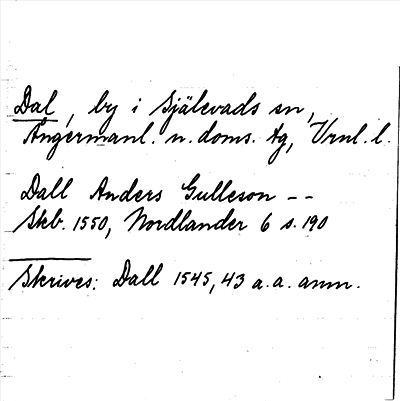 Dal, by i Själevads sn,
Ångermanl. n. doms. tg, Vrnl. l.
Dall Anders Gulleson --
Skb. 1550, Nordlander 6 s. 190
Skrives: Dall 1545, 43 a. a. anm.